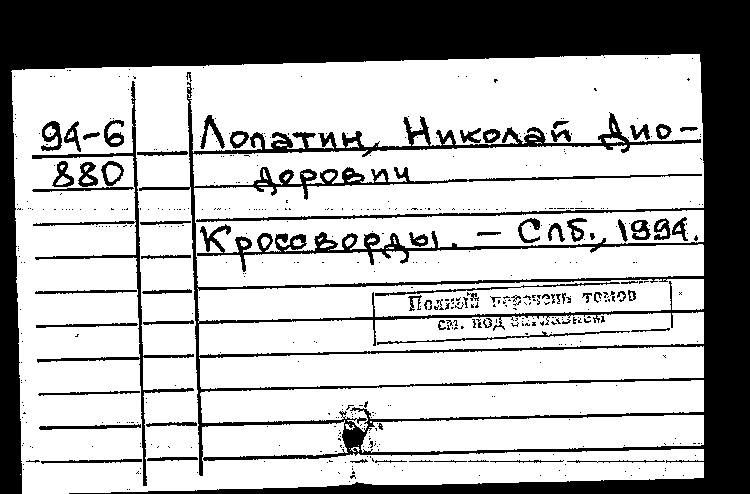 94-6 Лопатин, Николай Дио-
880 дорович
Кроссворды. - Спб., 1994.
Полный перечень томов
см. под заглавием